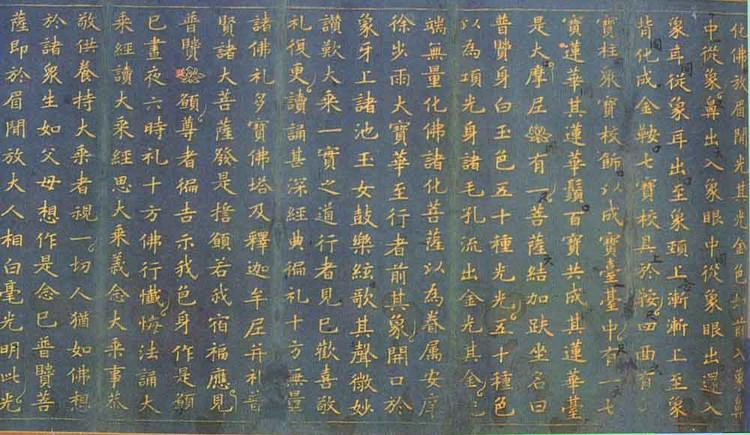 化佛放眉間光其光金色前入象鼻
中從象鼻出入象眼中從象眼出還入
象耳從象耳出至象頸上漸漸上至象
背化成金鞍七寶校具於鞍四面有
寶柱眾寶校飾以成寶臺臺中有一七
寶蓮華其蓮華鬚百寶共成其蓮華臺
是大摩尼有一菩薩結加趺坐名曰
普賢身白玉色五十種光光五十種色
以為項光身諸毛孔流出金光其金光
端無量化佛諸化菩薩以為眷属安庠
徐步雨大寶華至行者前其象開口於
象牙上諸池玉女鼓樂絃歌其聲微妙
讚歎大乘一實之道行者見已歡喜敬
礼復更讀誦甚深經典遍礼十方無量
諸佛礼多寶佛塔及釋迦牟尼并礼普
賢諸大菩薩發是誓願若我宿福應見
普賢願尊者遍吉示我色身作是願
已晝夜六時礼十方佛行懺悔法誦大
乘經讀大乘經思大乘義念大乘事恭
敬供養持大乘者視一切人猶如佛想
於諸衆生如父母想作是念已普賢菩
薩即於眉間放大人相白毫光明此光